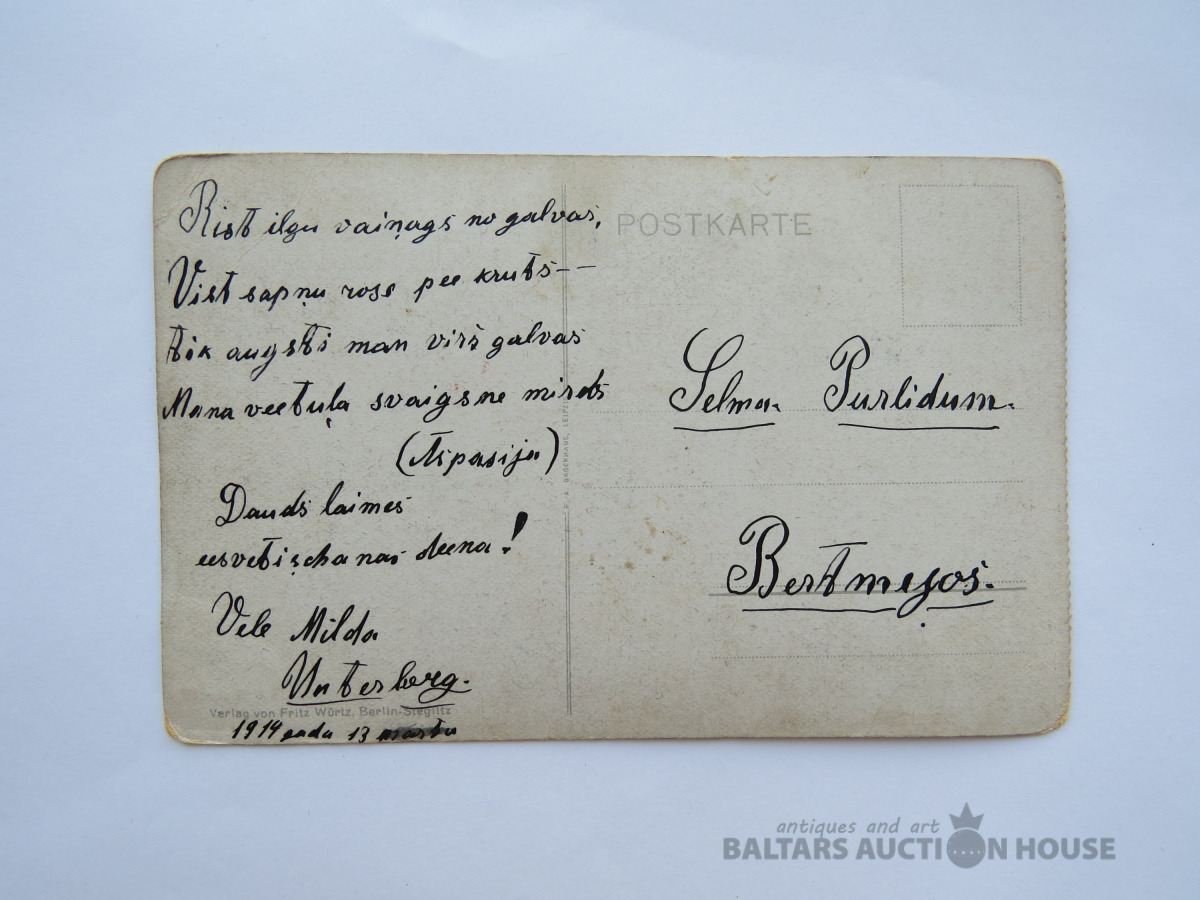 Rist ilgu vaiņags no galvas,
Vist sapņu rose pee kruts --
tik augsti man virs galvas
Mana veetuļa svaigsne mirds
(Aspasija)
Dauds laimes
eesvetischanas deena!
Vēle Milda
Unterberg.
Verlag von Fritz Würtz, Berlin-Steglitz
1914 gada 13 martā
POSTKARTE
Selma Purlidum.
Bertmeģos.
antiques and art
BALTARS AUCTION HOUSE